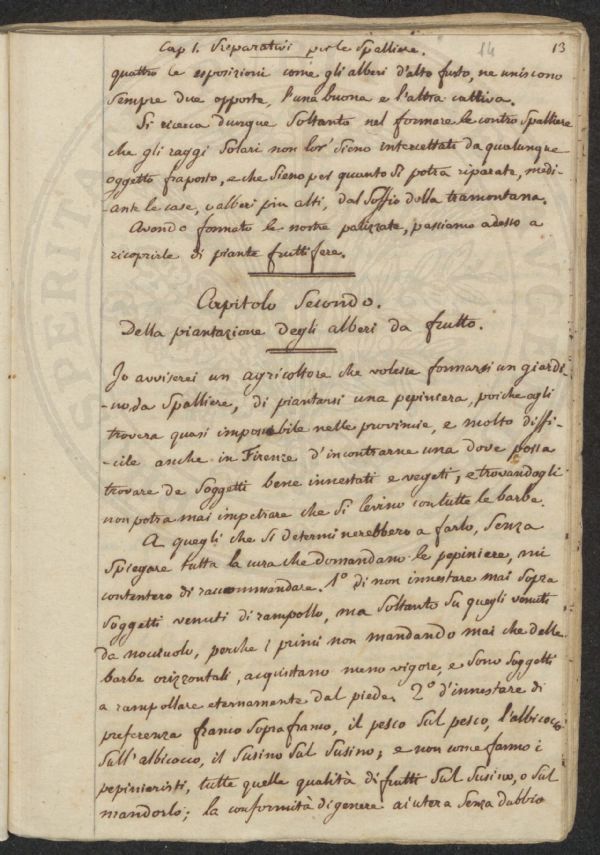 Cap I. Preparativi per le Spalliere. 14 13
quattro le esposizioni come gli alberi d'alto fusto, ne uniscono
Sempre due opposte, l'una buona e l'altra cattiva.
Si ricerca dunque Soltanto nel formare le contro Spalliere
che gli raggi Solari non lor' Sieno intercettati da qualunque
oggetto fraposto, e che Sieno per quanto Si potrà riparate, medi-
-ante le case, o alberi piu alti, dal Soffio della tramontana.
Avendo formato le nostre palizzate, passiamo adesso a
ricoprirle di piante fruttifere.
Capitolo Secondo.
Della piantazione degli alberi da frutto.
Io avviserei un agricoltore che volesse formarsi un giardi-
-no, da Spalliere, di piantarsi una pepiniera, poiche agli
trovera quasi impossibile nelle provincie, e molto diffi-
-cile anche in Firenze d'incontrarne una dove possa
trovare de Soggetti bene innestati e vegeti, e trovandogli
non potra mai impetrare che Si levino con tutte le barbe.
A quegli che Si determinerebbero a farlo, Senza
Spiegare tutta la cura che domandano le pepiniere, mi
contentero di raccommandare. 1º di non innestare mai Sopra
Soggetti venuti di rampollo, ma Soltanto Su quegli venuti
da nocciuolo, perche i primi non mandando mai che delle
barbe orizzontali, acquistano meno vigore, e Sono Soggetti
a rampollare eternamente dal piede. 2º d'innestare di
preferenza franco Sopra franco, il pesco Sul pesco, l'albicocco
Sull'albicocco, il Susino Sul Susino; e non come fanno i
pepinieristi, tutte quelle qualità di frutti Sul Susino, o Sul
mandorlo; la conformità di genere aiutera Senza dubbio